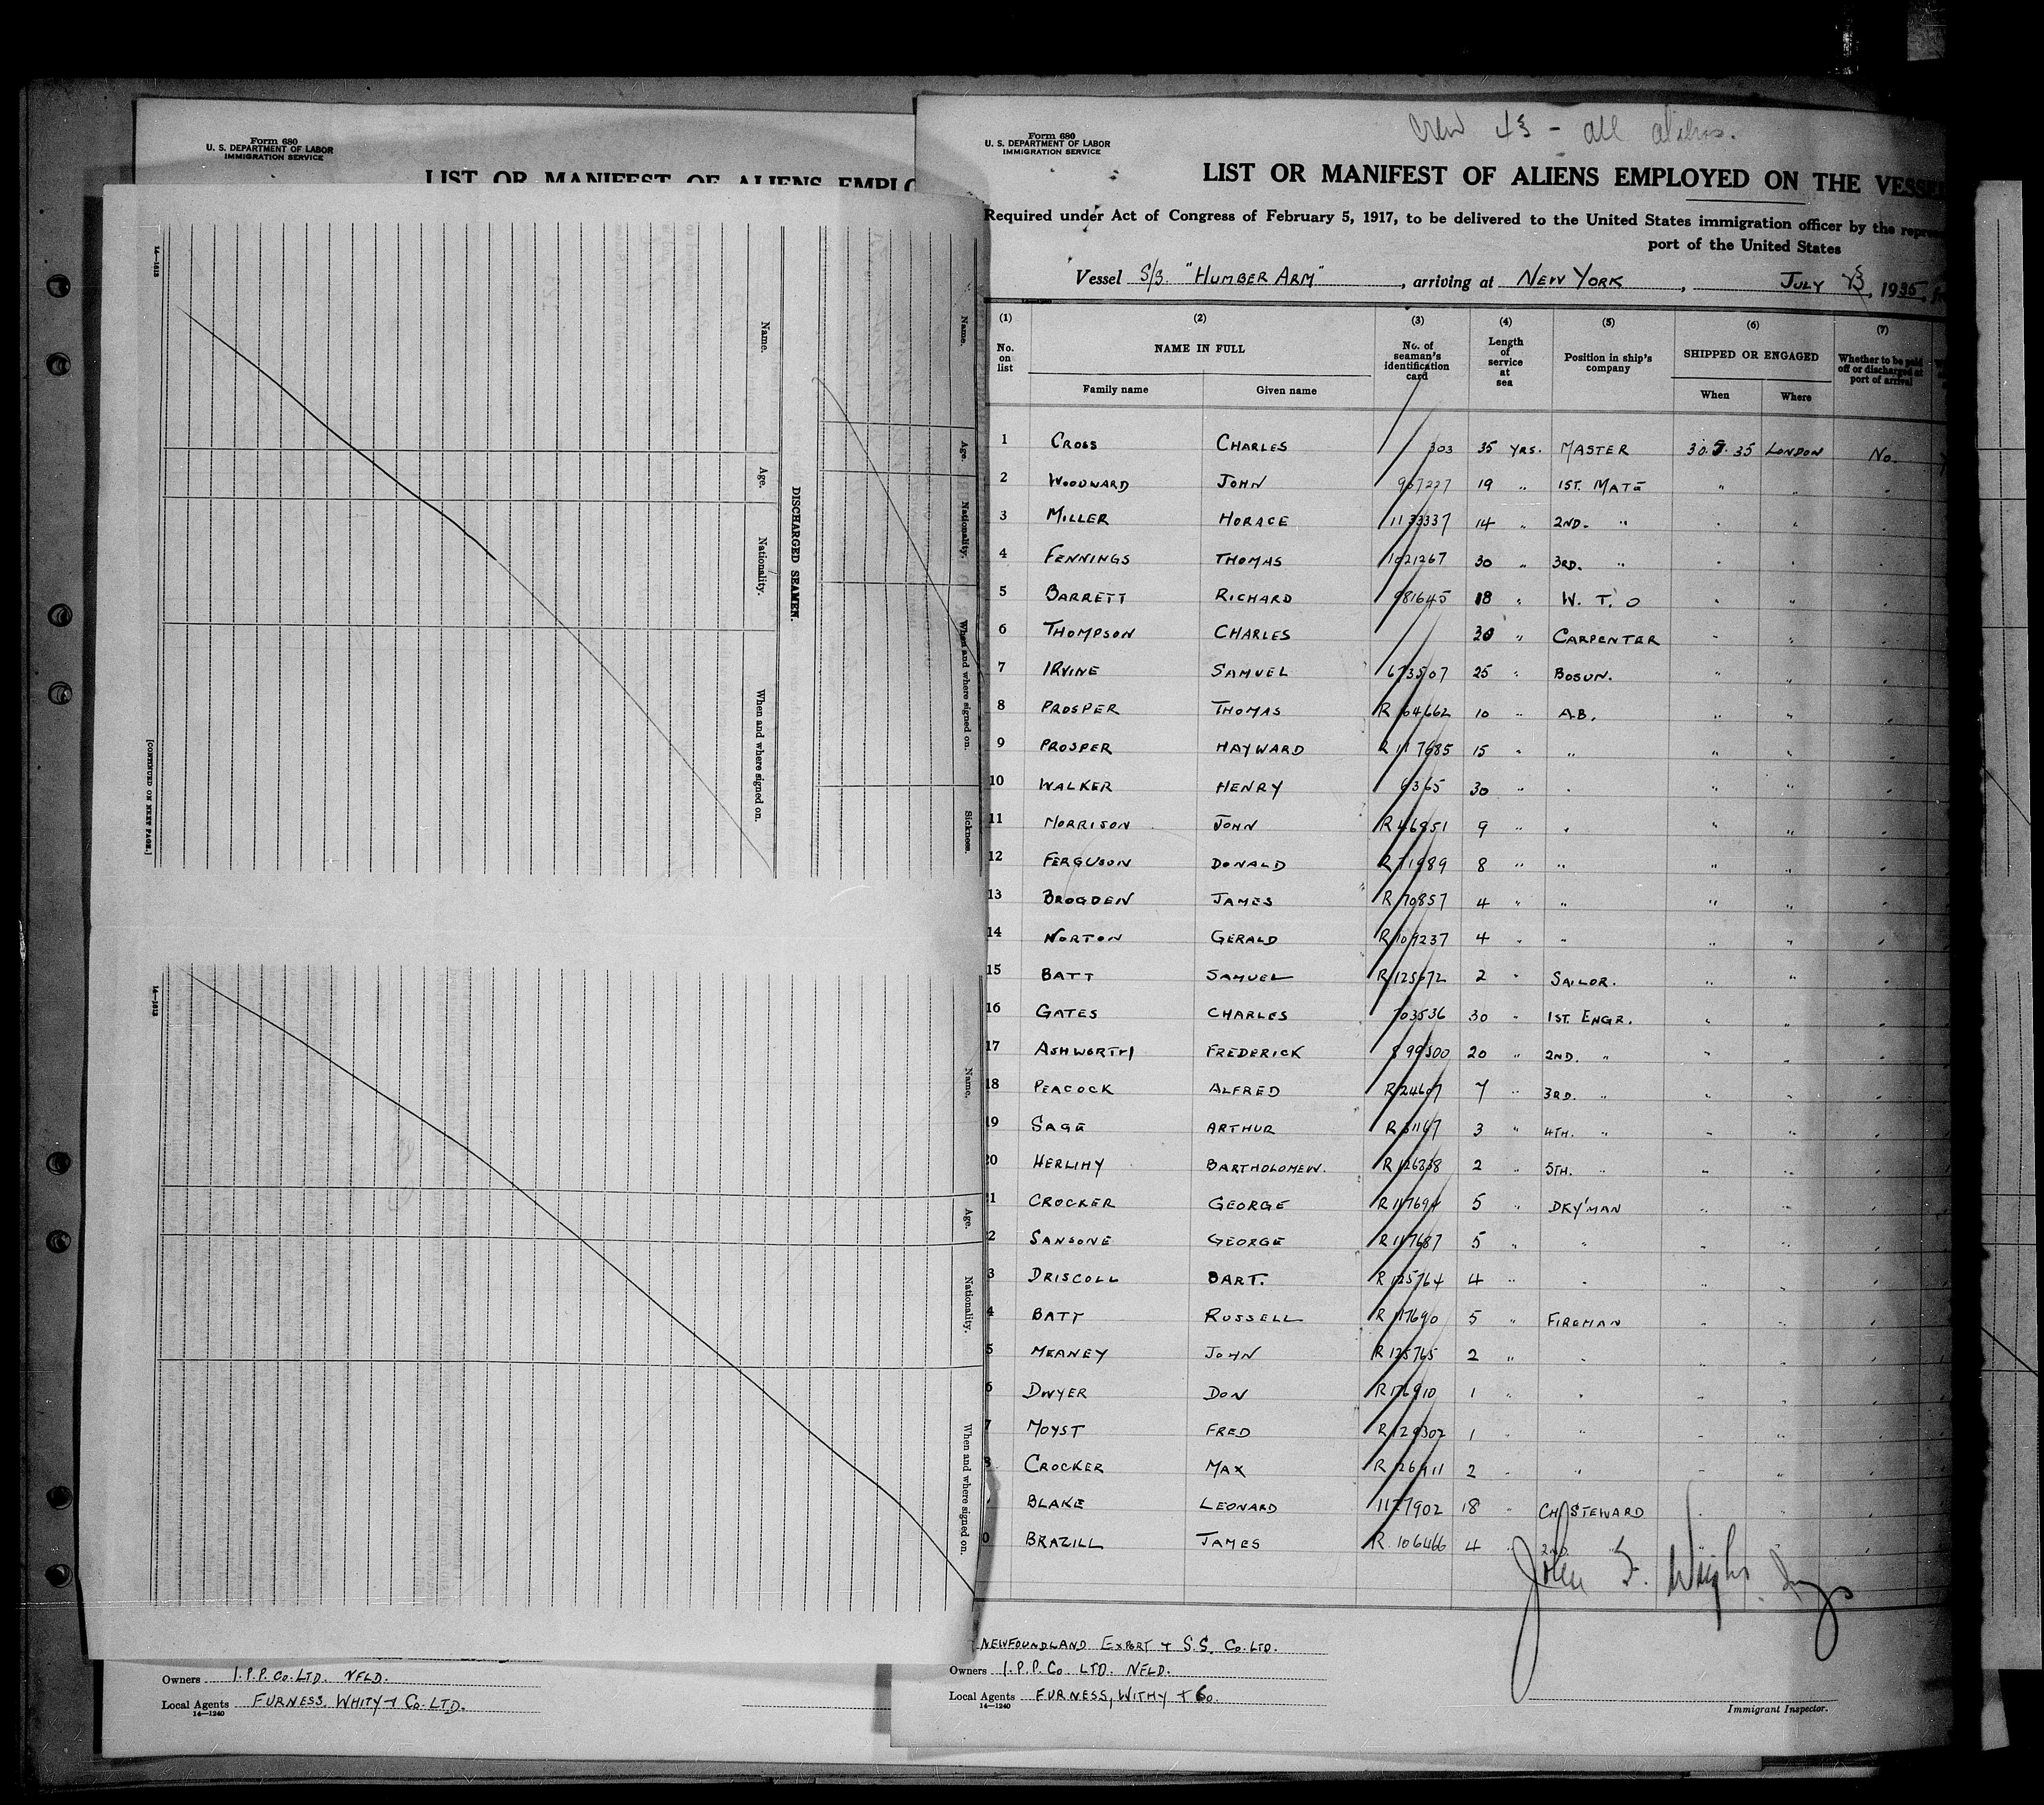 Form 680
U. S. DEPARTMENT OF LABOR
IMMIGRATION SERVICE
LIST OR MANIFEST OF ALIENS EMPLO
14—1813
Name.
Age.
Nationality.
When and where signed on.
DISCHARGED SEAMEN.
[CONTINUED ON NEXT PAGE.]
Name.
Age.
Nationality.
When and where signed on.
Sickness.
14—1813
Name.
Age.
Nationality.
When and where signed on.
Owners I.P.P. Co. LTD. NFLD.
Local Agents FURNESS. WHITY + Co. LTD.
14—1240
Crew 43 - all aliens.
Form 680
U. S. DEPARTMENT OF LABOR
IMMIGRATION SERVICE
LIST OR MANIFEST OF ALIENS EMPLOYED ON THE VESSE
Required under Act of Congress of February 5, 1917, to be delivered to the United States immigration officer by the repres
port of the United States
Vessel S/S. "HUMBER ARM", arriving at NEW YORK, JULY 1935,
(1) (2) (3) (4) (5) (6) (7)
No. on list NAME IN FULL No. of seaman's identification card Length of service at sea Position in ship's company SHIPPED OR ENGAGED Whether to be paid off or discharged at port of arrival
Family name Given name When Where
1 CROSS CHARLES 303 35 YRS. MASTER 30.5.35 LONDON No.
2 WOODWARD JOHN 967227 19 " 1ST. MATE " " "
3 MILLER HORACE 1133337 14 " 2ND. " " " "
4 FENNINGS THOMAS 1021267 30 " 3RD. " " " "
5 BARRETT RICHARD 981645 18 " W. T. O " " "
6 THOMPSON CHARLES 30 " CARPENTER " " "
7 IRVINE SAMUEL 673507 25 " BOSUN. " " "
8 PROSPER THOMAS R 64662 10 " A.B. " " "
9 PROSPER HAYWARD R 117685 15 " " " " "
10 WALKER HENRY 6365 30 " " " " "
11 MORRISON JOHN R 46951 9 " " " " "
12 FERGUSON DONALD R 71989 8 " " " " "
13 BROGDEN JAMES R 70857 4 " " " " "
14 NORTON GERALD R 109237 4 " " " " "
15 BATT SAMUEL R 125672 2 " SAILOR. " " "
16 GATES CHARLES 703536 30 " 1ST. ENGR. " " "
17 ASHWORTH FREDERICK 899500 20 " 2ND. " " " "
18 PEACOCK ALFRED R 24607 7 " 3RD. " " " "
19 SAGE ARTHUR R 51167 3 " 4TH. " " " "
20 HERLIHY BARTHOLOMEW. R 126238 2 " 5TH. " " " "
1 CROCKER GEORGE R 117694 5 " DKY'MAN " " "
2 SANSONE GEORGE R 117687 5 " " " " "
3 DRISCOLL BART. R 125764 4 " " " " "
4 BATT RUSSELL R 117690 5 " FIREMAN " " "
5 MEANEY JOHN R 125765 2 " " " " "
6 DWYER DON R 176910 1 " " " " "
7 MOYST FRED R 129307 1 " " " " "
8 CROCKER MAX R 126911 2 " " " " "
BLAKE LEONARD 1127902 18 " CH. STEWARD " "
0 BRAZILL JAMES R. 106466 4 " 2ND. "
John F.
NEWFOUNDLAND EXPORT + S.S. Co. LTD.
Owners I.P.P. Co. LTD. NFLD.
Local Agents FURNESS, WITHY + Co.
14—1240
Immigrant Inspector.